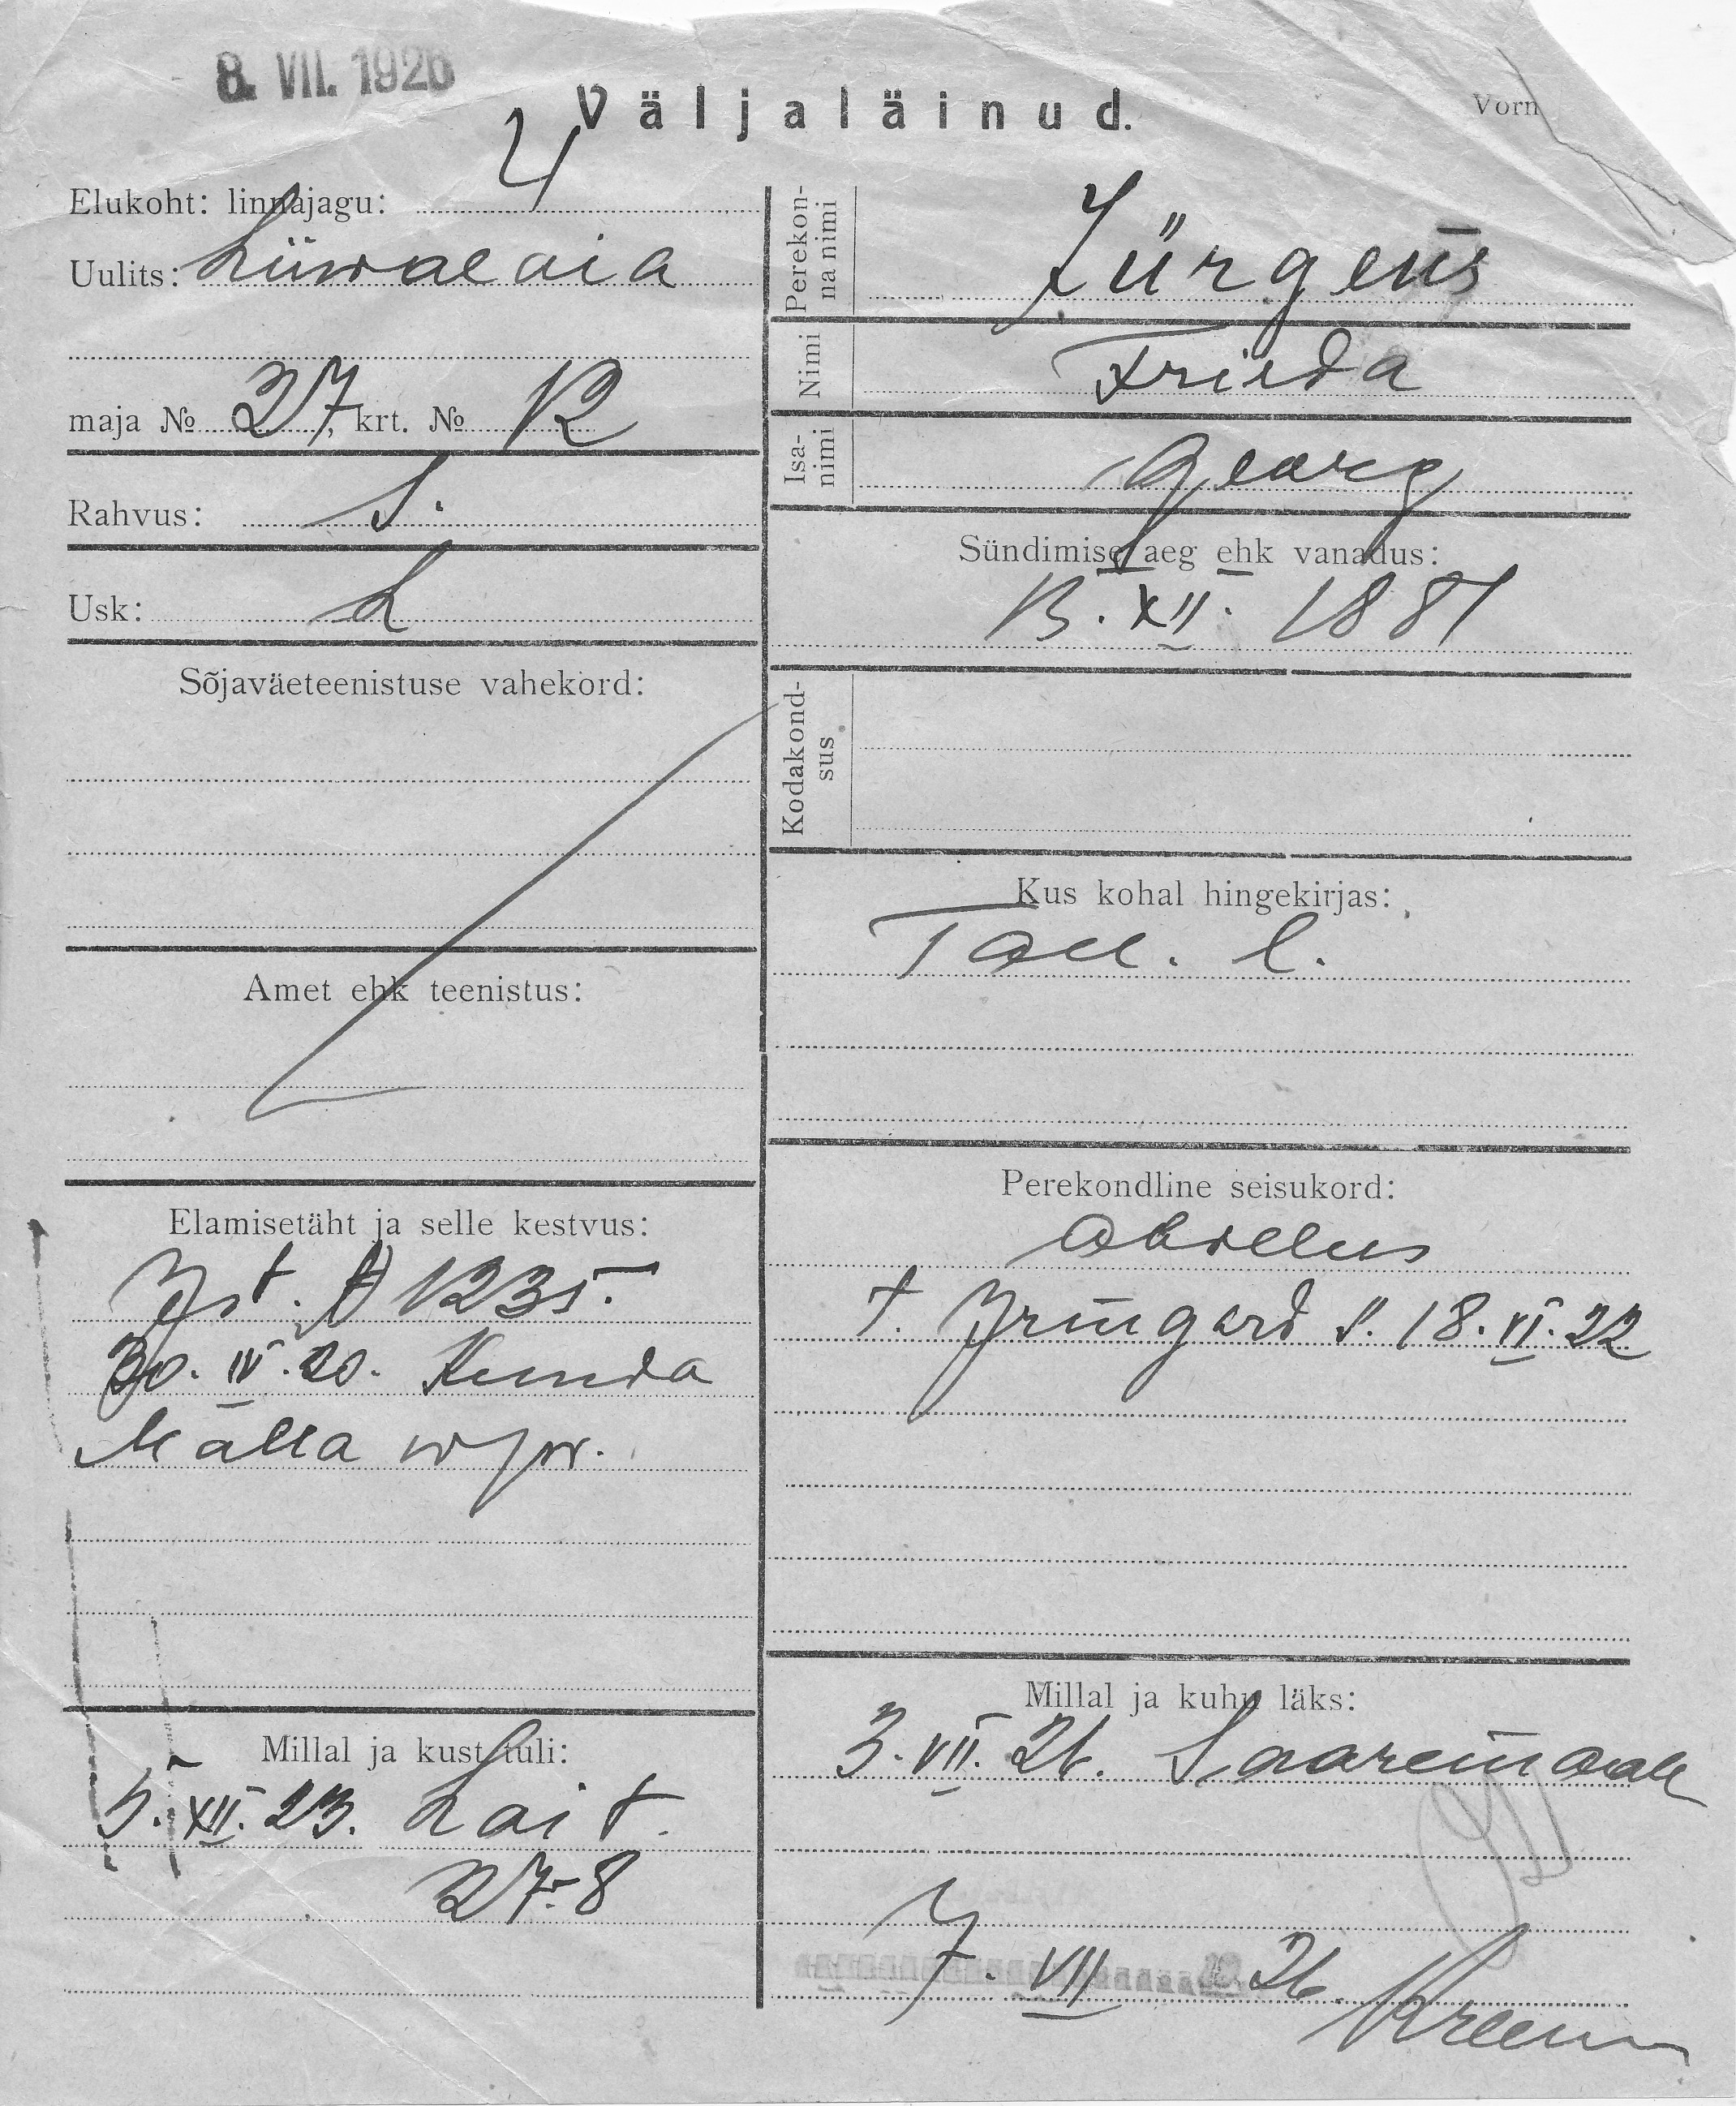 8. VII. 1926
Väljaläinud.
Vorm
Elukoht: linnajagu: 4
Uulits: Liiwalaia
maja № 27, krt. № 12
Rahvus: S.
Usk: L
Sõjaväeteenistuse vahekord:
Amet ehk teenistus:
Elamisetäht ja selle kestvus:
Ist. A 1235.
30. IV. 20. Kunda
Malla
Millal ja kust tuli:
5. XII. 23. Lait.
27-8
Perekonna nimi
Jürgens
Nimi
Frieda
Isa-
nimi
Georg
Sündimise aeg ehk vanadus:
13. XII. 1881
Kodakond-
sus
Kus kohal hingekirjas:
Tall. l.
Perekondline seisukord:
abielus
t. Irmgard s. 18. VI. 22
Millal ja kuhu läks:
3. VII. 26. Saaremaale
7. VII 26.